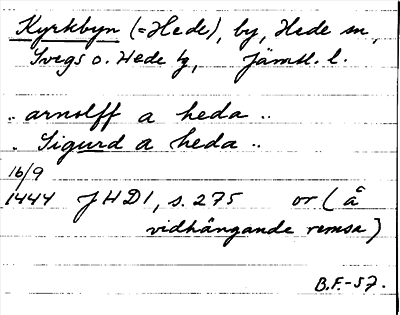 Kyrkbyn (=Hede), by, Hede sn,
Svegs o. Hede tg, Jämtl. l.
.. arnolff a heda ..
.. Sigurd a heda ..
16/9
1444 JHD1, s. 275 or (å
vidhängande remsa)
B.F.-57.